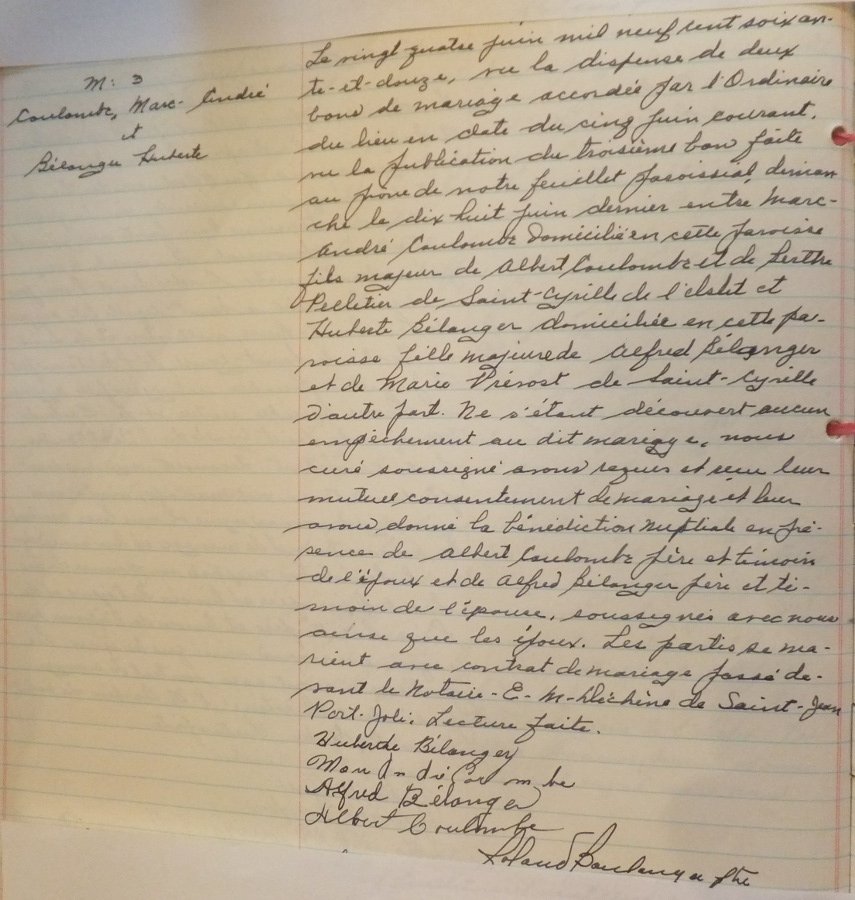 M: 3
Coulombe, Marc-André
et
Bélanger Huberte
Le vingt quatre juin mil neuf cent soixan-
te-et-douze, vu la dispense de deux
bans de mariage accordée par l'Ordinaire
du lieu en date du cinq juin courant,
vu la publication du troisième ban faite
au prône de notre feuillet paroissial, diman
che le dix huit juin dernier entre Marc-
André Coulombe domicilié en cette paroisse
fils majeur de Albert Coulombe et de Berthe
Pelletier de Saint-Cyrille de l'Islet et
Huberte Bélanger domiciliée en cette pa-
roisse fille majeure de Alfred Bélanger
et de Marie Prévost de Saint-Cyrille
d'autre part. Ne s'étant découvert aucun
empêchement au dit mariage, nous
curé soussigné avons requis et reçu leur
mutuel consentement de mariage et leur
avons donné la bénédiction nuptiale en pré-
sence de Albert Coulombe père et témoin
de l'époux et de Alfred Bélanger père et té-
moin de l'épouse, soussignés avec nous
ainsi que les époux. Les parties se ma-
rient avec contrat de mariage passé de-
vant le Notaire-E-M-Déchène de Saint-Jean
Port-Joli. Lecture faite.
Huberte Bélanger
Marc André Coulombe
Alfred Bélanger
Albert Coulombe
Roland Boulanger ptre